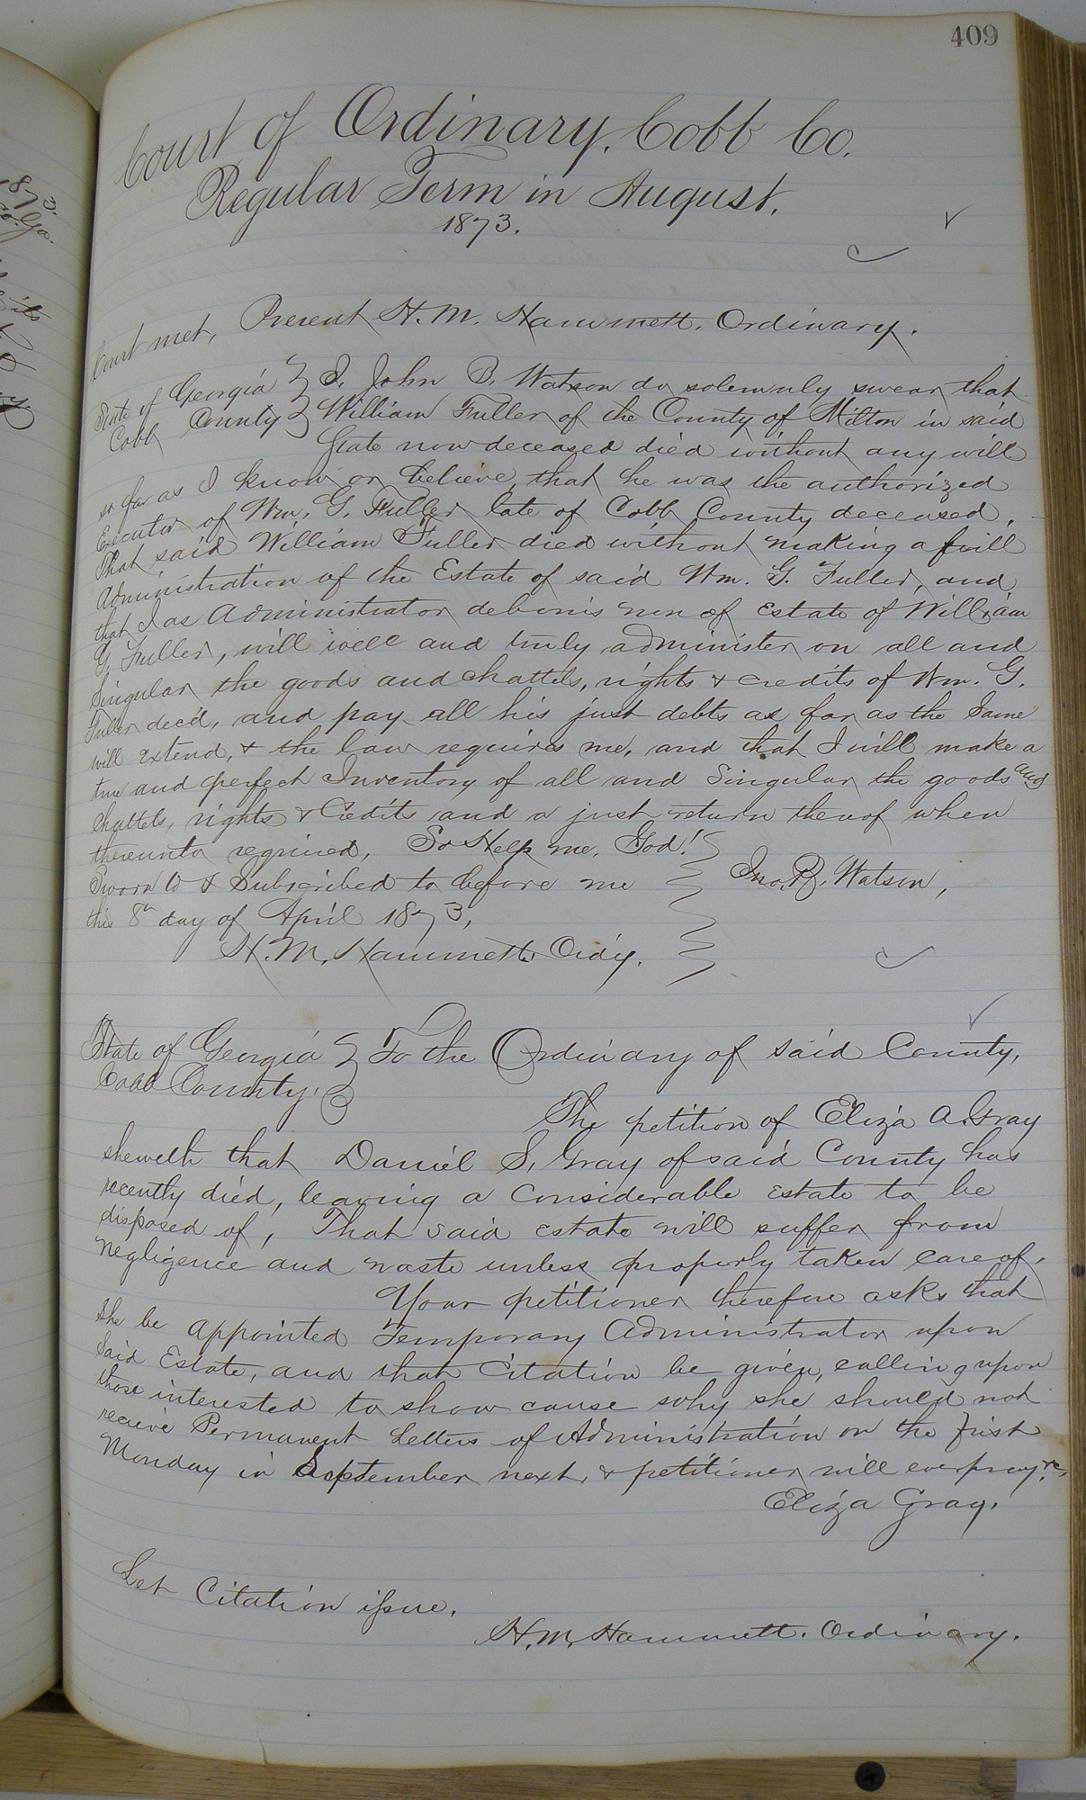 409
Court of Ordinary, Cobb Co.
Regular Term in August.
1873.
Court met, Present H. M. Hammett. Ordinary.
State of Georgia } I, John B. Watson do solemnly swear that
Cobb County } William Fuller of the County of Milton in said
State now deceased died without any will
so far as I know or believe, that he was the authorized
Executor of Wm. G. Fuller late of Cobb County deceased.
That said William Fuller died without making a full
Administration of the Estate of said Wm. G. Fuller, and
that I as Administrator debonis non of Estate of William
G. Fuller, will well and truly administer on all and
Singular the goods and chattels, rights & credits of Wm. G.
Fuller dec'd, and pay all his just debts as far as the Same
will extend, & the law requires me, and that I will make a
true and perfect Inventory of all and Singular the goods and
Chattels, rights & Credits and a just return thereof when
thereunto required. So Help me, God!
Sworn to & Subscribed to before me } Jno. B. Watson,
this 8th day of April 1873,
H. M. Hammett Ord'y.
State of Georgia } To the Ordinary of said County,
Cobb County. }
The petition of Eliza A. Gray
sheweth that Daniel S. Gray of said County has
recently died, leaving a Considerable Estate to be
disposed of, That said estate will suffer from
negligence and waste unless properly taken care of.
Your petitioner therefore asks that
she be appointed Temporary Administrator upon
Said Estate, and that Citation be given, calling upon
those interested to show cause why she should not
recieve Permanent Letters of Administration on the first
Monday in September next, & petitioner will ever pray &c,
Eliza Gray.
Let Citation issue.
H. M. Hammett. Ordinary.
1873.
Ga.
its